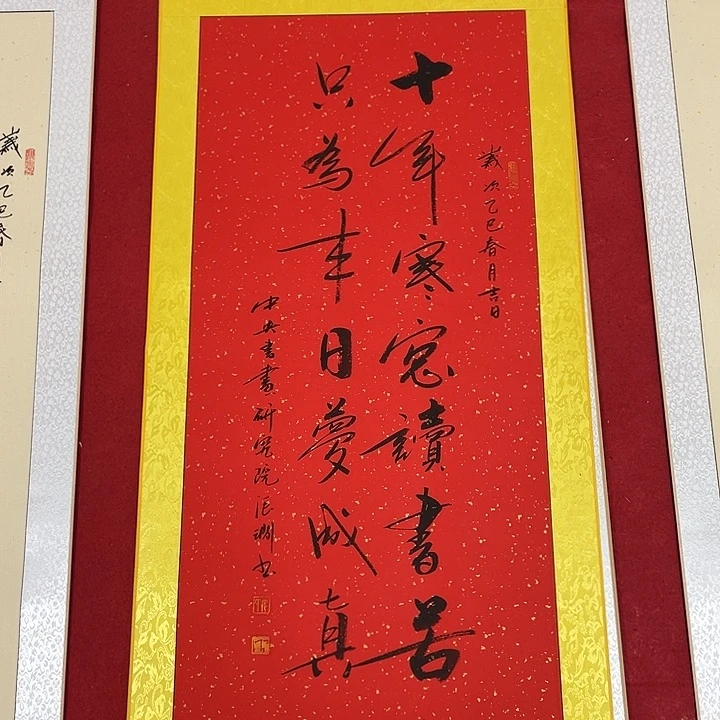 歲次乙巳春月吉日
十年寒窓讀書苦
只為来日夢成真
中央書畫研究院張淵书
歲次乙巳春